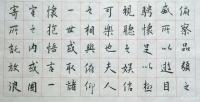 俯察品類之
盛所以遊目
騁懷足以極
視聽之娛信
可樂也夫人
之相與俯仰
一世或取諸
懷抱悟言一
室之內或因
寄所託放浪